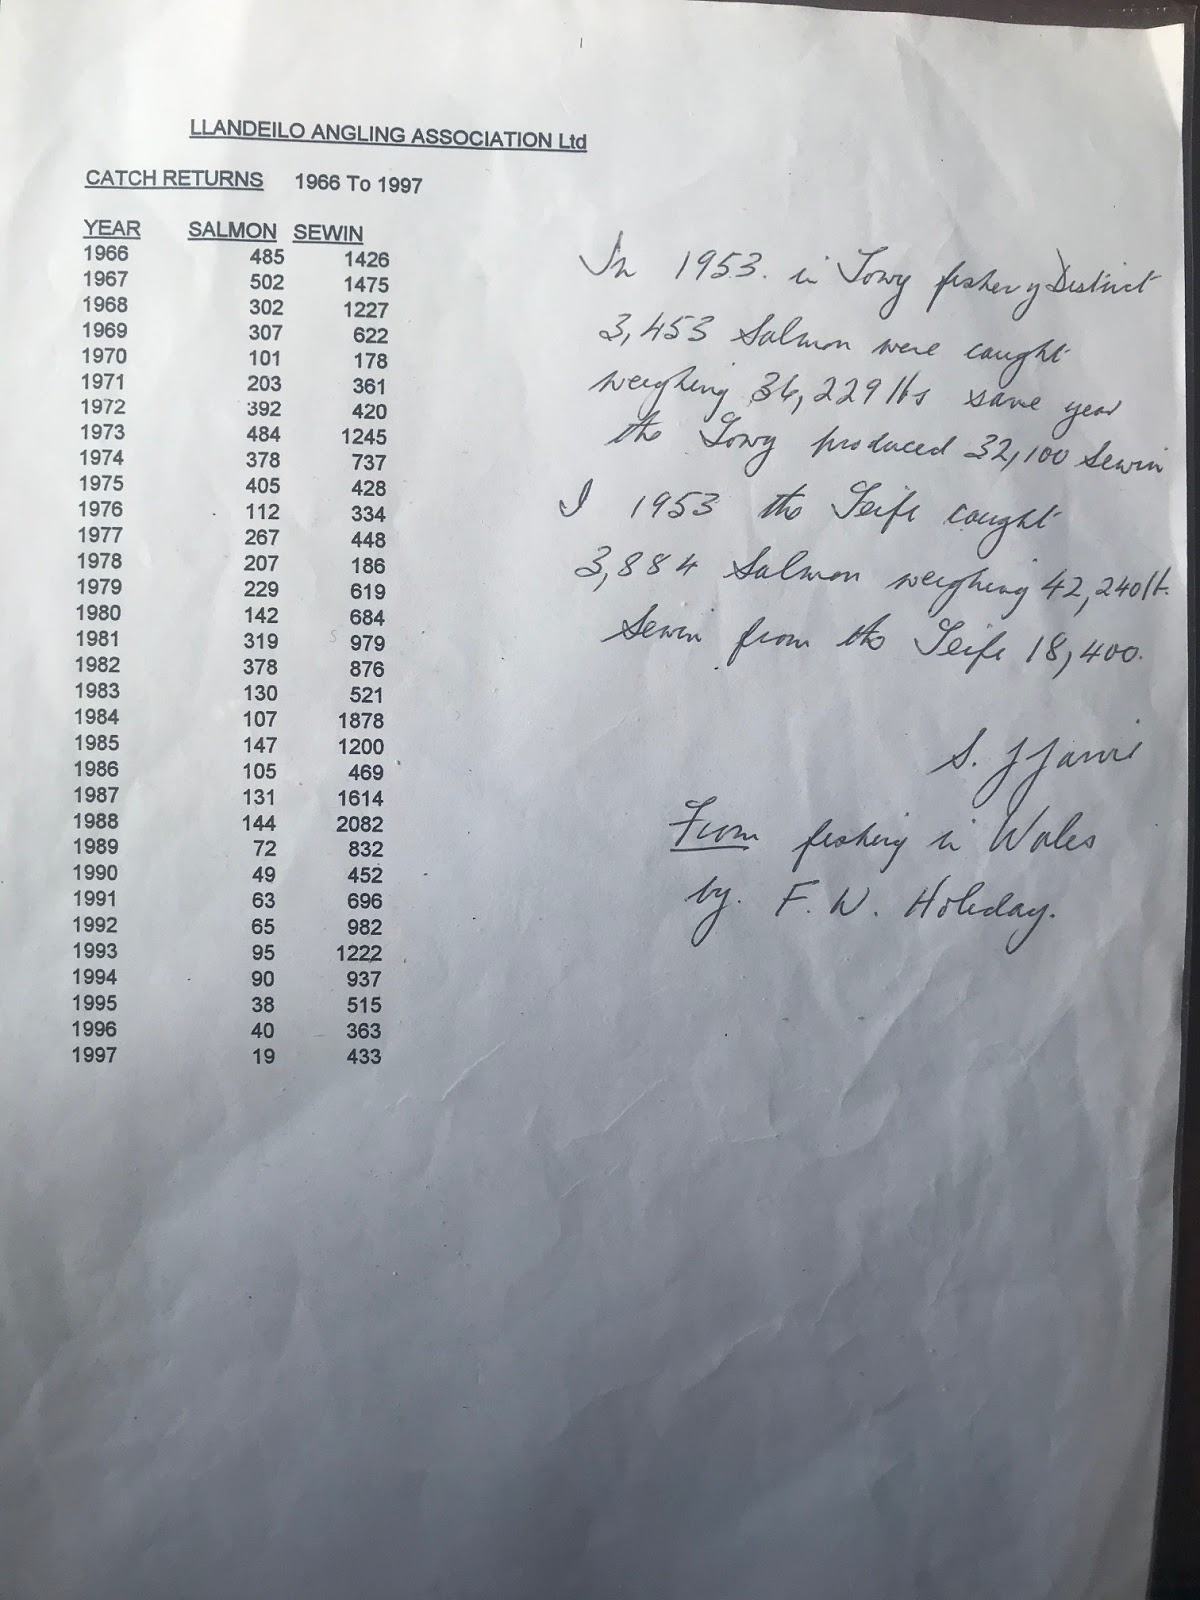 LLANDEILO ANGLING ASSOCIATION Ltd
CATCH RETURNS 1966 To 1997
YEAR SALMON SEWIN
1966 485 1426
1967 502 1475
1968 302 1227
1969 307 622
1970 101 178
1971 203 361
1972 392 420
1973 484 1245
1974 378 737
1975 405 428
1976 112 334
1977 267 448
1978 207 186
1979 229 619
1980 142 684
1981 319 979
1982 378 876
1983 130 521
1984 107 1878
1985 147 1200
1986 105 469
1987 131 1614
1988 144 2082
1989 72 832
1990 49 452
1991 63 696
1992 65 982
1993 95 1222
1994 90 937
1995 38 515
1996 40 363
1997 19 433
In 1953. in Towy fishery District
3,453 Salmon were caught
weighing 36,229 lbs same year
the Towy produced 32,100 Sewin
I 1953 the Teife caught
3,884 Salmon weighing 42,240 lt.
Sewin from the Teife 18,400.
S. J
From fishing in Wales
by. F. W. Holiday.